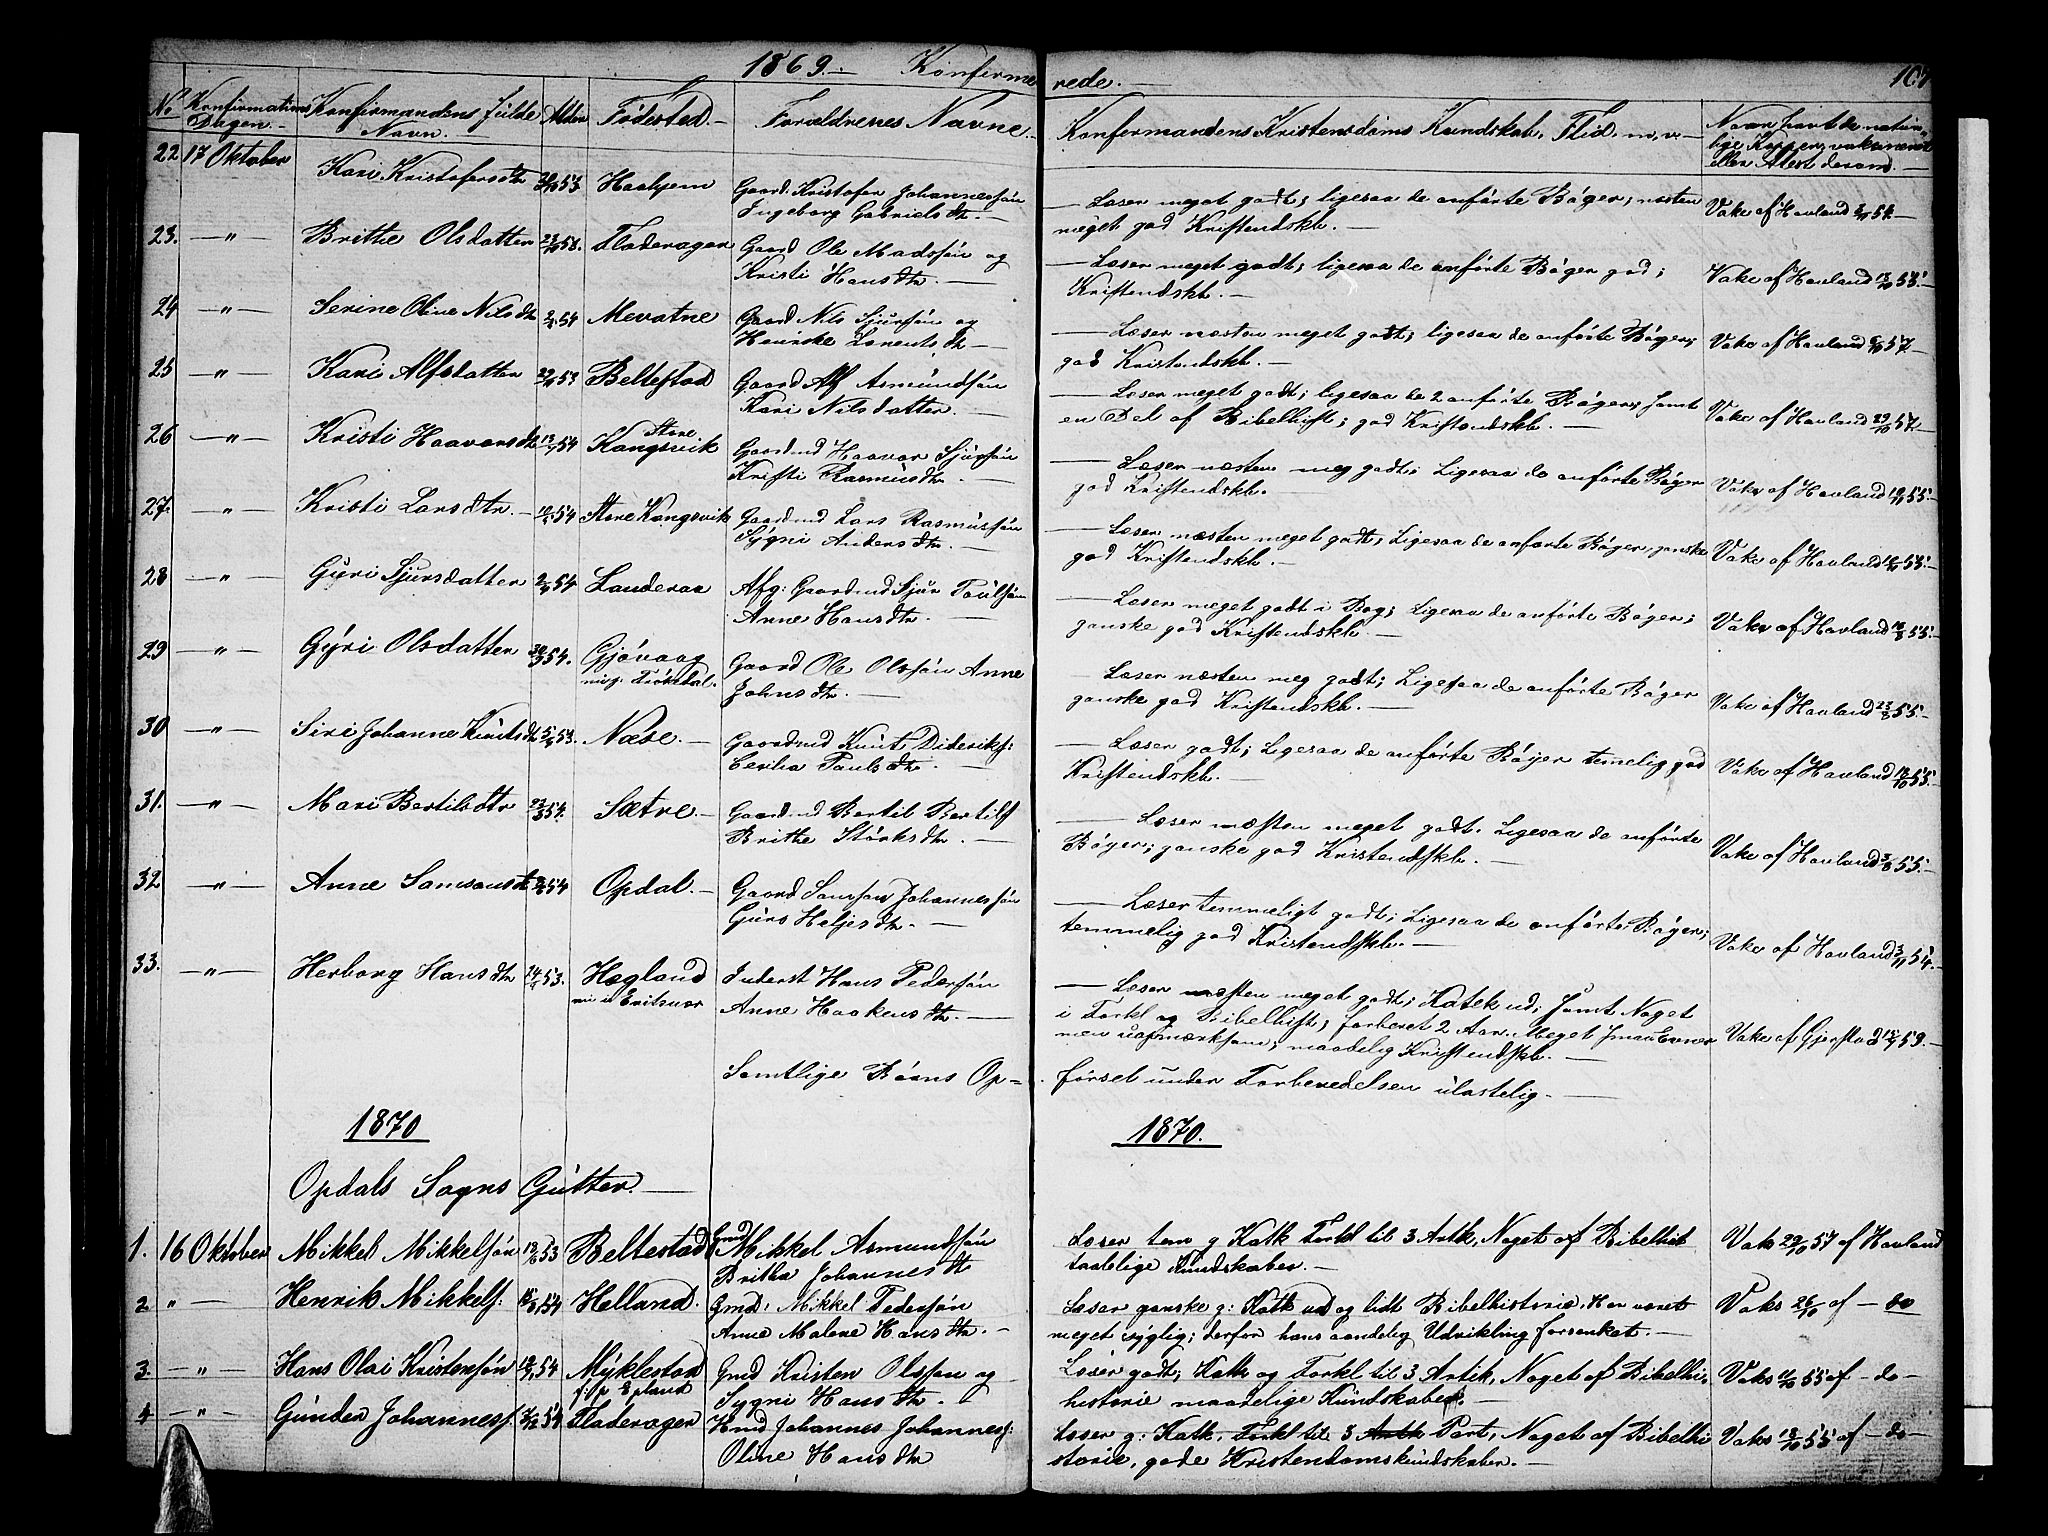 1869.— Konfirmerede.— 107
No Konfirmations Dagen.— Konfirmandens fulde Navn.— Alder Fødested.— Forældrenes Navne.— Konfermandens Kristendoms Kundskab, Flid m, v.— Naar havt de naturlige Kopper, vaksineret eller Attest derom.—
22 17 Oktober Kari Kristofersdtr 53 Haahjem Gaard. Kristofer Johannessøn
Ingeborg Gabrielsdtr.—
— Læser meget godt; ligesaa de anførte Bøger; næsten
meget god Kristendskb.— Vake af Havland 54.—
23. —"— Brithe Olsdatter 53. Fladerager Gaard Ole Madssøn og
Kristi Hansdtr.—
— Læser meget godt; ligesaa de anførte Bøger god;
Kristendskb.— Vake af Havland 55.—
24 —"— Serine Oline Nilsdtr 54 Mevatne Gaard Nils Sjursøn og
Henrikke Lorentsdtr—
— Læser næsten meget godt; ligesaa de anførte Bøger;
god Kristendskb.— Vake af Havland 57.—
25 —"— Kari Alfsdatter 53 Beltestad Gaard Alf Asmundsøn
Kari Nilsdatter.—
— Læser meget godt; ligesaa de 2 anførte Bøger, samt
en Del af Bibelhist; god Kristendskb.— Vake af Havland 29/10 57.—
26 —"— Kristi Haavarsdtr 54 Store Kangsvik Gaardmd Haavar Sjursøn
Kristi Rasmusdtr.—
— Læser næsten meg godt; Ligesaa de anførte Bøger
god Kristendskb.— Vake af Havland 55.—
27. —"— Kristi Larsdtr.— 54 Store Kangsvik Gaardmd Lars Rasmussøn
Sygni Andersdtr.—
— Læser næsten meget godt, Ligesaa de anførte Bøger, ganske
god Kristendskb.— Vake af Havland 55.—
28 —"— Guri Sjursdatter 54 Landeraa Afg: Gaardmd Sjur Poulsøn
Anne Hansdtr.—
— Læser meget godt i Bog; Ligesaa de anførte Bøger;
ganske god Kristendskb.— Vake af Havland 55.—
29 —"— Gyri Olsdatter 54. Gjøvaag Gaard Ole Olssøn Anne
Johnsdtr.—
— Læser næsten meg godt; Ligesaa de anførte Bøger
ganske god Kristendskb.— Vake af Havland 23/8 55.—
30 —"— Siri Johanne Knutsdtr 53. Næse.— Gaardmd Knut Dideriks:
Cecilia Paulsdtr.—
— Læser godt; Ligesaa de anførte Bøger temelig god
Kristendskb.— Vake af Havland 55.—
31. —"— Mari Bertilsdtr 54. Sætre.— Gaardmd Bertil Bertils
Brithe Størksdtr.—
— Læser næsten meget godt. Ligesaa de anførte
Bøger; ganske god Kristendskb.— Vake af Havland 55.—
32 —"— Anne Samsonsdtr 54 Opdal.— Gaard Samson Johannessøn
Guro Heljesdtr.—
— Læser temmeligt godt; Ligesaa de anførte Bøger;
temmelig god Kristendskb.— Vake af Havland 54.—
33. —"— Herborg Hansdtr 53. Hægland Inderst Hans Pedersøn
Anne Haakensdtr.—
— Læser næsten meget godt; Katek ud, samt Noget
i Forkl og Bibelhist; forberet 2 Aar. Meget smaa Evner
men uopmærksom; maadelig Kristendskb.— Vake af Gjersta 59.—
Samtlige Børns Opførsel under Forberedelsen ulastelig.—
1870 1870.
Opdals Sogns Gutter.—
1. 16 Oktober Mikkel Mikkelsøn 53 Beltestad Gmd Mikkel Asmundsøn
Britha Johannesdtr
Læser tem g Katk Forkl til 3 Artk, Noget af Bibelhist
taalelige Kundskaber.— Vaks 29/10 57 af Havland
2 "— Henrik Mikkels: 54 Helland. Gmd, Mikkel Pedersøn
Anne Malene Hansdtr.—
Læser ganske g: Katk ud og lidt Bibelhistorie, Har været
meget sygelig; derfor hans aandelig Udvikling forsenket.— Vaks af — do
3. —"— Hans Olai Kristensøn 54 Myklestad Gmd Kristen Olssøn og
Sygni Hansdtr.
Læser godt; Katk og Forkl til 3 Artik, Noget af Bibelhi-
historie maadelige Kundskaber. Vaks 55 af — do —
4 —"— Gunder Johanness. 54 Fladerager Hmd Johannes Johanness:
Oline Hansdtr
Læser g: Katk, Forkl til 3 Part, Noget af Bibelhi
storie, gode Kristendomskundskaber.— Vaks 55 af — do —